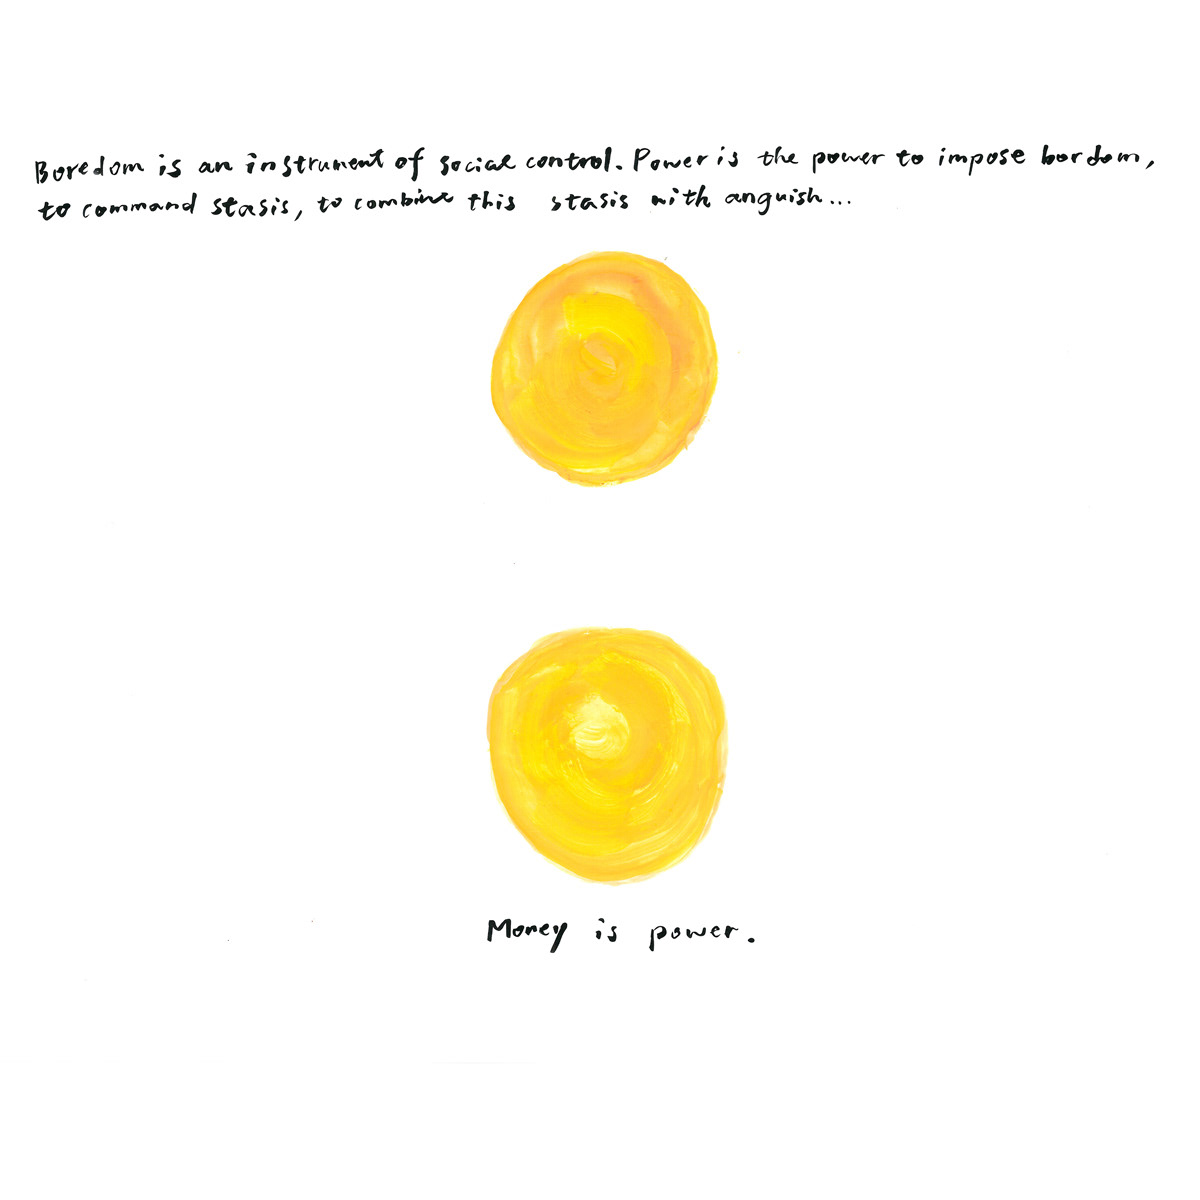 Boredom is an instrument of social control. Power is the power to impose bordom,
to command stasis, to combine this stasis with anguish...
Money is power.